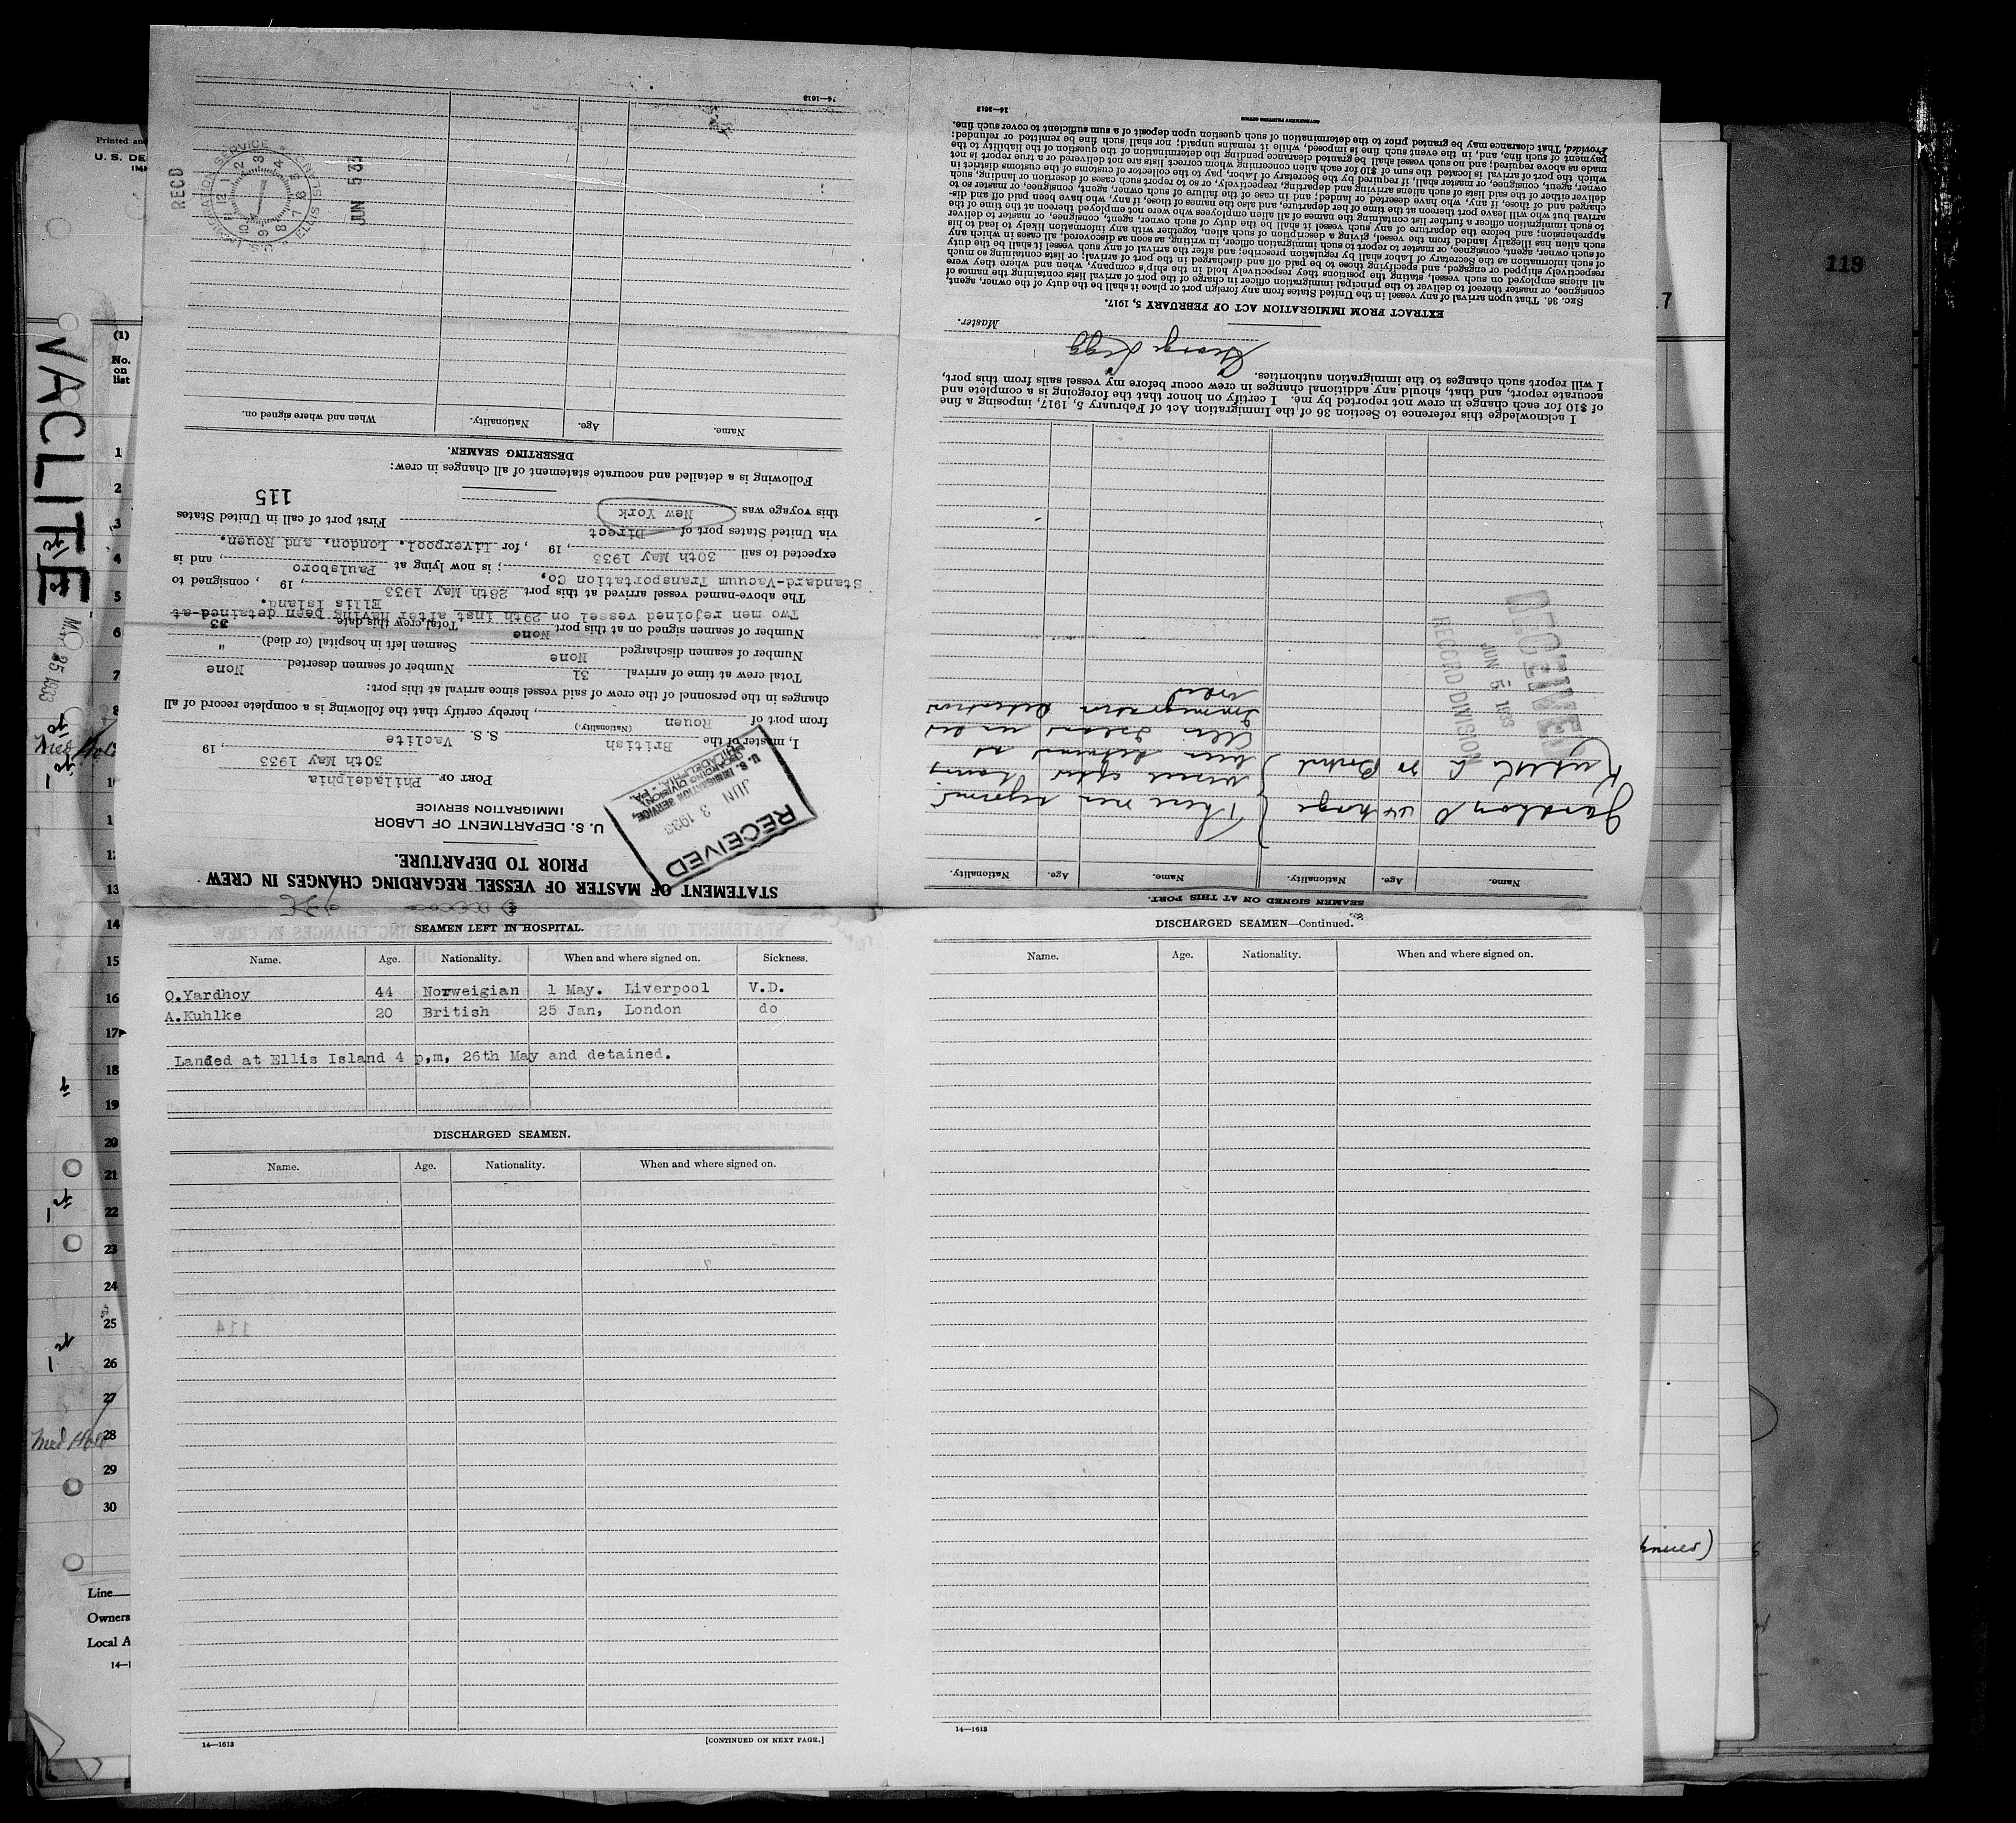 STATEMENT OF MASTER OF VESSEL REGARDING CHANGES IN CREW
PRIOR TO DEPARTURE.
U. S. DEPARTMENT OF LABOR
IMMIGRATION SERVICE
RECEIVED
JUN 3 1933
U. S. IMMIGRATION SERVICE,
RECORDING DIVISION,
PHILADELPHIA, PA.
PORT OF Philadelphia
30th May 1933, 19
I, master of the British S.S. Vaclite
(Nationality.)
from port of Rouen, hereby certify that the following is a complete record of all
changes in the personnel of the crew of said vessel since arrival at this port:
Total crew at time of arrival 31 Number of seamen deserted None
Number of seamen discharged None Seamen left in hospital (or died) "
Number of seamen signed on at this port None Total crew this date 33
Two men rejoined vessel on 29th inst after Having been detained at
Ellis Island.
The above-named vessel arrived at this port 28th May 1933, 19 , consigned to
Standard-Vacuum Transportation Co, ; is now lying at Paulsboro, and is
expected to sail 30th May 1933, 19 , for Liverpool. London. and Rouen.
via United States port of Direct First port of call in United States
this voyage was New York
115
Following is a detailed and accurate statement of all changes in crew:
DESERTING SEAMEN.
Name. Age. Nationality. When and where signed on.
RECD
IMMIGRATION SERVICE ELLIS ISLAND
JUN 5 33
14—1613
SEAMEN LEFT IN HOSPITAL.
Name. Age. Nationality. When and where signed on. Sickness.
O.Yardhoy 44 Norweigian 1 May. Liverpool V.D.
A.Kuhlke 20 British 25 Jan, London do
Landed at Ellis Island 4 p,m, 26th May and detained.
DISCHARGED SEAMEN.
Name. Age. Nationality. When and where signed on.
14—1613
[CONTINUED ON NEXT PAGE.]
DISCHARGED SEAMEN—Continued.
Name. Age. Nationality. When and where signed on.
14—1613
SEAMEN SIGNED ON AT THIS PORT.
Name. Age. Nationality. Name. Age. Nationality.
These men rejoined
vessel after having
been detained at
Ellis Island under
Immigration Detention
RECEIVED
JUN 5 1933
RECORD DIVISION
I acknowledge this reference to Section 36 of the Immigration Act of February 5, 1917, imposing a fine
of $10 for each change in crew not reported by me. I certify on honor that the foregoing is a complete and
accurate report, and that, should any additional changes in crew occur before my vessel sails from this port,
I will report such changes to the immigration authorities.
George Legg
Master.
EXTRACT FROM IMMIGRATION ACT OF FEBRUARY 5, 1917.
SEC. 36. That upon arrival of any vessel in the United States from any foreign port or place it shall be the duty of the owner, agent,
consignee, or master thereof to deliver to the principal immigration officer in charge of the port of arrival lists containing the names of
all aliens employed on such vessel, stating the positions they respectively hold in the ship's company, when and where they were
respectively shipped or engaged, and specifying those to be paid off and discharged in the port of arrival; or lists containing so much
of such information as the Secretary of Labor shall by regulation prescribe; and after the arrival of any such vessel it shall be the duty
of such owner, agent, consignee, or master to report to such immigration officer, in writing, as soon as discovered, all cases in which any
such alien has illegally landed from the vessel, giving a description of such alien, together with any information likely to lead to his
apprehension; and before the departure of any such vessel it shall be the duty of such owner, agent, consignee, or master to deliver
to such immigration officer a further list containing the names of all alien employees who were not employed thereon at the time of the
arrival but who will leave port thereon at the time of her departure, and also the names of those, if any, who have been paid off and dis-
charged and of those, if any, who have deserted or landed; and in case of the failure of such owner, agent, consignee, or master so to
deliver either of the said lists of such aliens arriving and departing, respectively, or so to report such cases of desertion or landing, such
owner, agent, consignee, or master shall, if required by the Secretary of Labor, pay to the collector of customs of the customs district in
which the port of arrival is located the sum of $10 for each alien concerning whom correct lists are not delivered or a true report is not
made as above required; and no such vessel shall be granted clearance pending the determination of the question of the liability to the
payment of such fine, and, in the event such fine is imposed, while it remains unpaid; nor shall such fine be remitted or refunded:
Provided, That clearance may be granted prior to the determination of such question upon deposit of a sum sufficient to cover such fine.
GOVERNMENT PRINTING OFFICE
14—1613
VACLITE
Printed and
U. S. DE
(1)
No.
on
list
1
2
3
4
5
6
7
8
13
14
15
16
17
18
19
20
21
22
23
24
25
26
27
28
29
30
Med Hold
Line
Owners
Local A
14—1
113